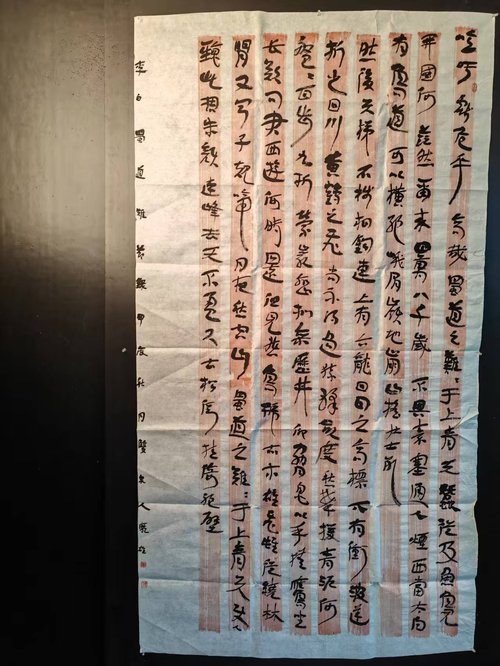 噫吁戲危乎高哉蜀道之難〻于上青天蠶叢及魚鳧
開國何茫然爾來四萬八千歲不與秦塞通人煙西當太白
有鳥道可以橫絕峨眉巔地崩山摧壯士死
然後天梯石棧相鉤連上有六龍回日之高標下有衝波逆
折之回川黃鶴之飛尚不得過猿猱欲度愁攀援青泥何
盤〻百步九折縈巖巒捫參歷井仰脅息以手撫膺坐
長歎問君西遊何時還但見悲鳥號古木雄飛雌從繞林
間又聞子規啼夜月愁空山蜀道之難〻于上青天使人
聽此凋朱顏連峰去天不盈尺枯松倒挂倚絕壁
李白蜀道難節錄甲辰秋月